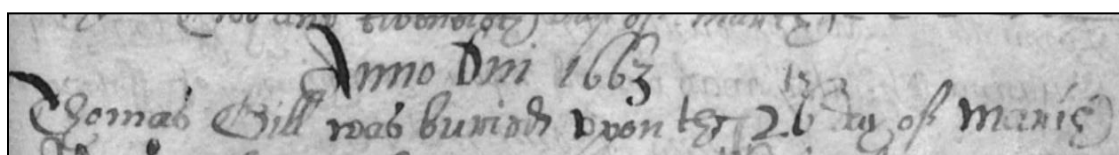 and day of
Anno Dni 1663
Thomas Gill was buried vpon the 26 day of March